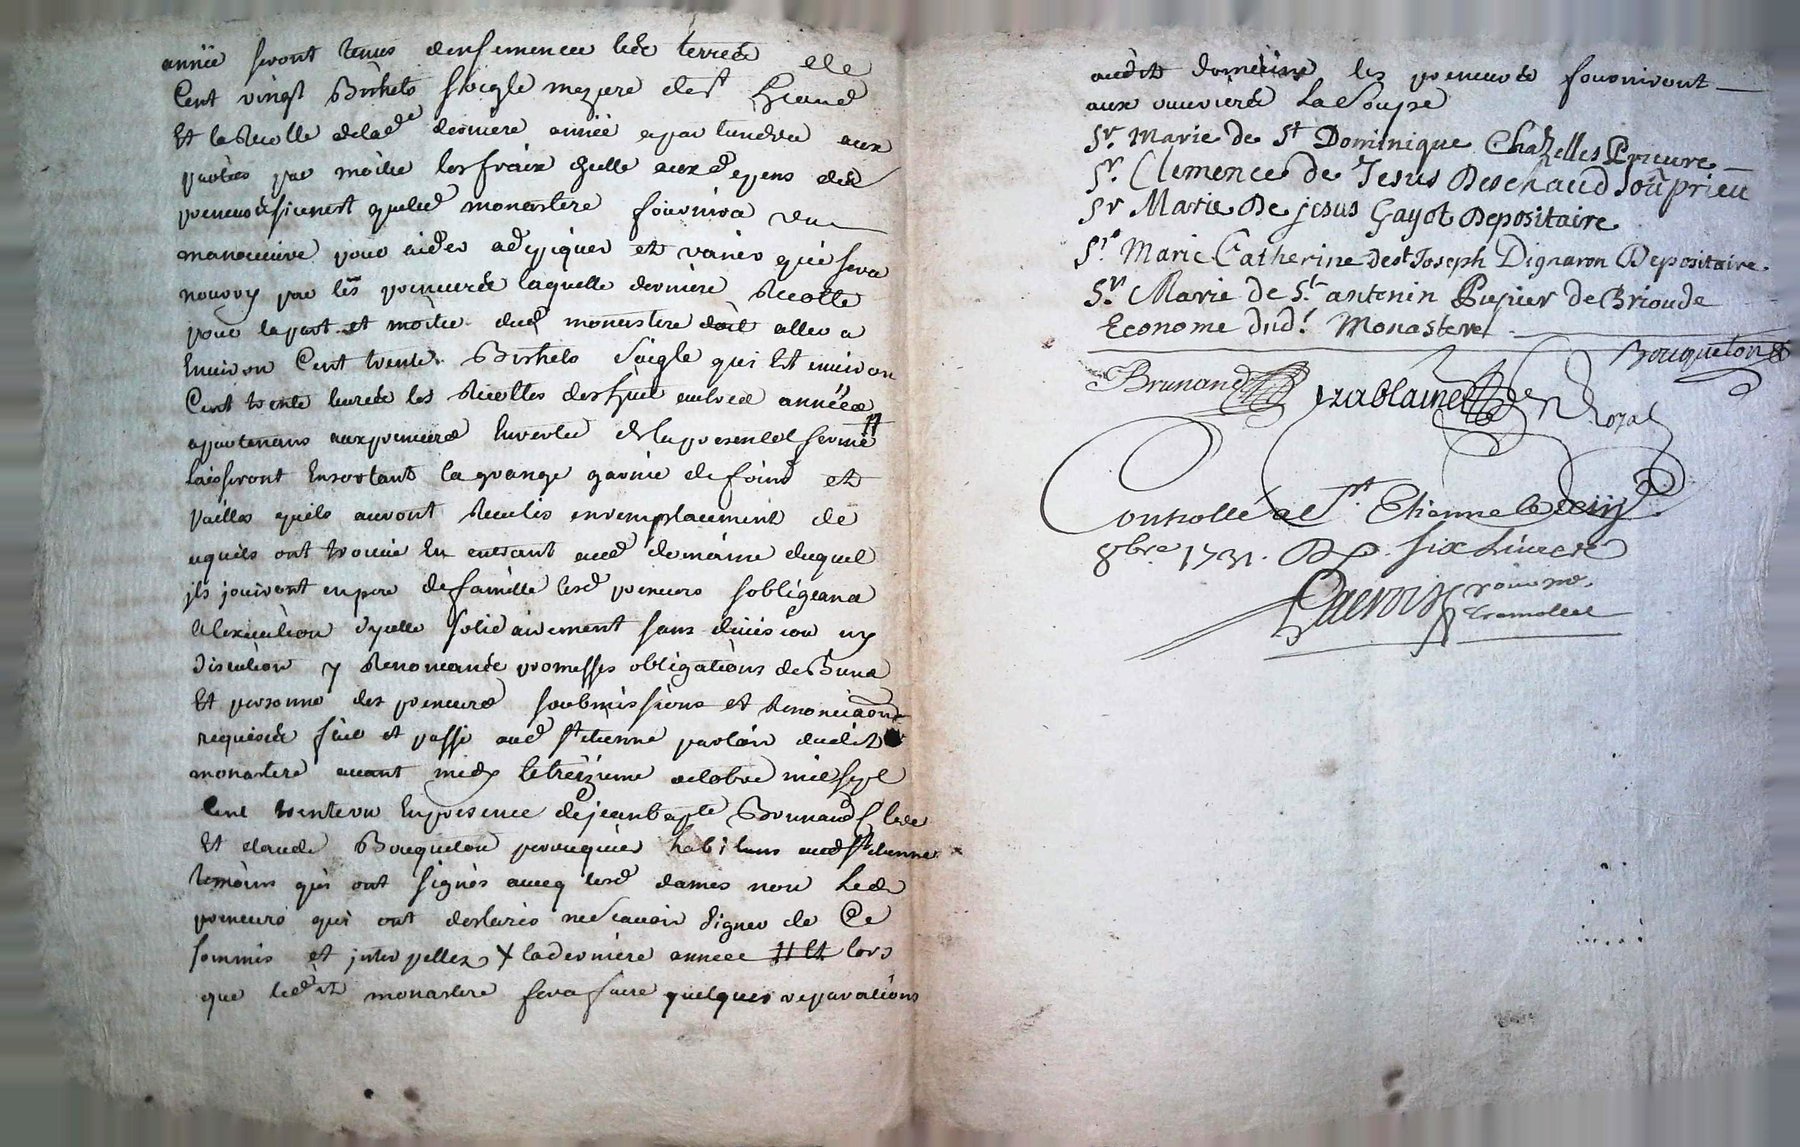 année seront tenus densemencer led. terres de
Cent vingt Bichets seigle mezure dest. Chaud
Et la Recolte delad. derniere année apartiendra aux
parties par moitié les fraix dicelle aux depens des
preneurs sinest queled. monastere fournira un
manoeuvre pour aider a depiquer et vaner qui sera
nourry par les preneurs laquelle derniere Recolte
pour la part et moitié dud. monastere doit aller a
Environ Cent trente Bichets seigle qui Est environ
Cent trente livres les Recoltes des huit autres années
apartenans aux preneurs En vertu de la presente ferme #
laisseront En sortant la grange garnie de foins et
pailles quils auront Reculis en remplacement de
ce quils ont trouvé En entrant aud. domaine duquel
jls jouiront en pere de famille lesd. preneurs sobligeans
a lexecution dycelle solidairement sans division ny
discution y Renonceants promesses obligations de Biens
Et personne des preneurs soubmissions et Renonciaons
requises fait et passé aud. st. etienne parloir dudit
monastere avant midy le treizieme octobre mil sept
Cent trente un En presence de jean bapte Brunand Clerc
Et claude Bouqueton perruquier habitans aud. st. etienne
temoins qui ont signés avecq lesd. dames non Lesd.
preneurs qui ont desclarés ne scavoir signer de Ce
sommés et jnterpellez X la derniere annee # Et lors
que ledit monastere fera faire quelques reparations
audit domaine les preneurs fourniront
aux ouvriers La Soupe
Sr. Marie de St Dominique Chazelles Prieure
Sr. Clemence de Jesus Deschaud souprieu
Sr Marie De jesus Gayot Depositaire
Sr. Marie Catherine de st Joseph Dignaron Depositaire.
Sr. Marie de St. antonin Pupier de Brioude
Econome dud.t Monastere
Brunand Bouqueton
Controllé a St. Etienne le
8bre 1731. R. six Livres